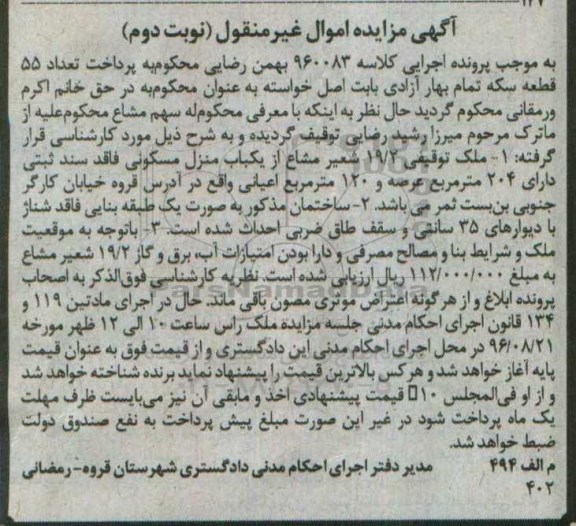 آگهی مزایده اموال غیرمنقول (نوبت دوم)
به موجب پرونده اجرایی کلاسه ۹۶۰۰۸۳ بهمن رضایی محکوم‌به پرداخت تعداد ۵۵
قطعه سکه تمام بهار آزادی بابت اصل خواسته به عنوان محکوم‌به در حق خانم اکرم
ورمقانی محکوم گردید حال نظر به اینکه با معرفی محکوم‌له سهم مشاع محکوم‌علیه از
ماترک مرحوم میرزا رشید رضایی توقیف گردیده و به شرح ذیل مورد کارشناسی قرار
گرفته: ۱- ملک توقیفی ۱۹/۲ شعیر مشاع از یکباب منزل مسکونی فاقد سند ثبتی
دارای ۲۰۴ مترمربع عرصه و ۱۲۰ مترمربع اعیانی واقع در آدرس قروه خیابان کارگر
جنوبی بن‌بست ثمر می باشد. ۲- ساختمان مذکور به صورت یک طبقه بنایی فاقد شناژ
با دیوارهای ۳۵ سانتی و سقف طاق ضربی احداث شده است. ۳- باتوجه به موقعیت
ملک و شرایط بنا و مصالح مصرفی و دارا بودن امتیازات آب، برق و گاز ۱۹/۲ شعیر مشاع
به مبلغ ۱۱۲/۰۰۰/۰۰۰ ریال ارزیابی شده است. نظریه کارشناسی فوق‌الذکر به اصحاب
پرونده ابلاغ و از هرگونه اعتراض موثری مصون باقی ماند. حال در اجرای مادتین ۱۱۹ و
۱۳۴ قانون اجرای احکام مدنی جلسه مزایده ملک راس ساعت ۱۰ الی ۱۲ ظهر مورخه
۹۶/۰۸/۲۱ در محل اجرای احکام مدنی این دادگستری و از قیمت فوق به عنوان قیمت
پایه آغاز خواهد شد و هرکس بالاترین قیمت را پیشنهاد نماید برنده شناخته خواهد شد
و از او فی‌المجلس ۱۰□ قیمت پیشنهادی اخذ و مابقی آن نیز می‌بایست ظرف مهلت
یک ماه پرداخت شود در غیر این صورت مبلغ پیش پرداخت به نفع صندوق دولت
ضبط خواهد شد.
م الف ۴۹۴ مدیر دفتر اجرای احکام مدنی دادگستری شهرستان قروه- رمضانی
۴۰۲